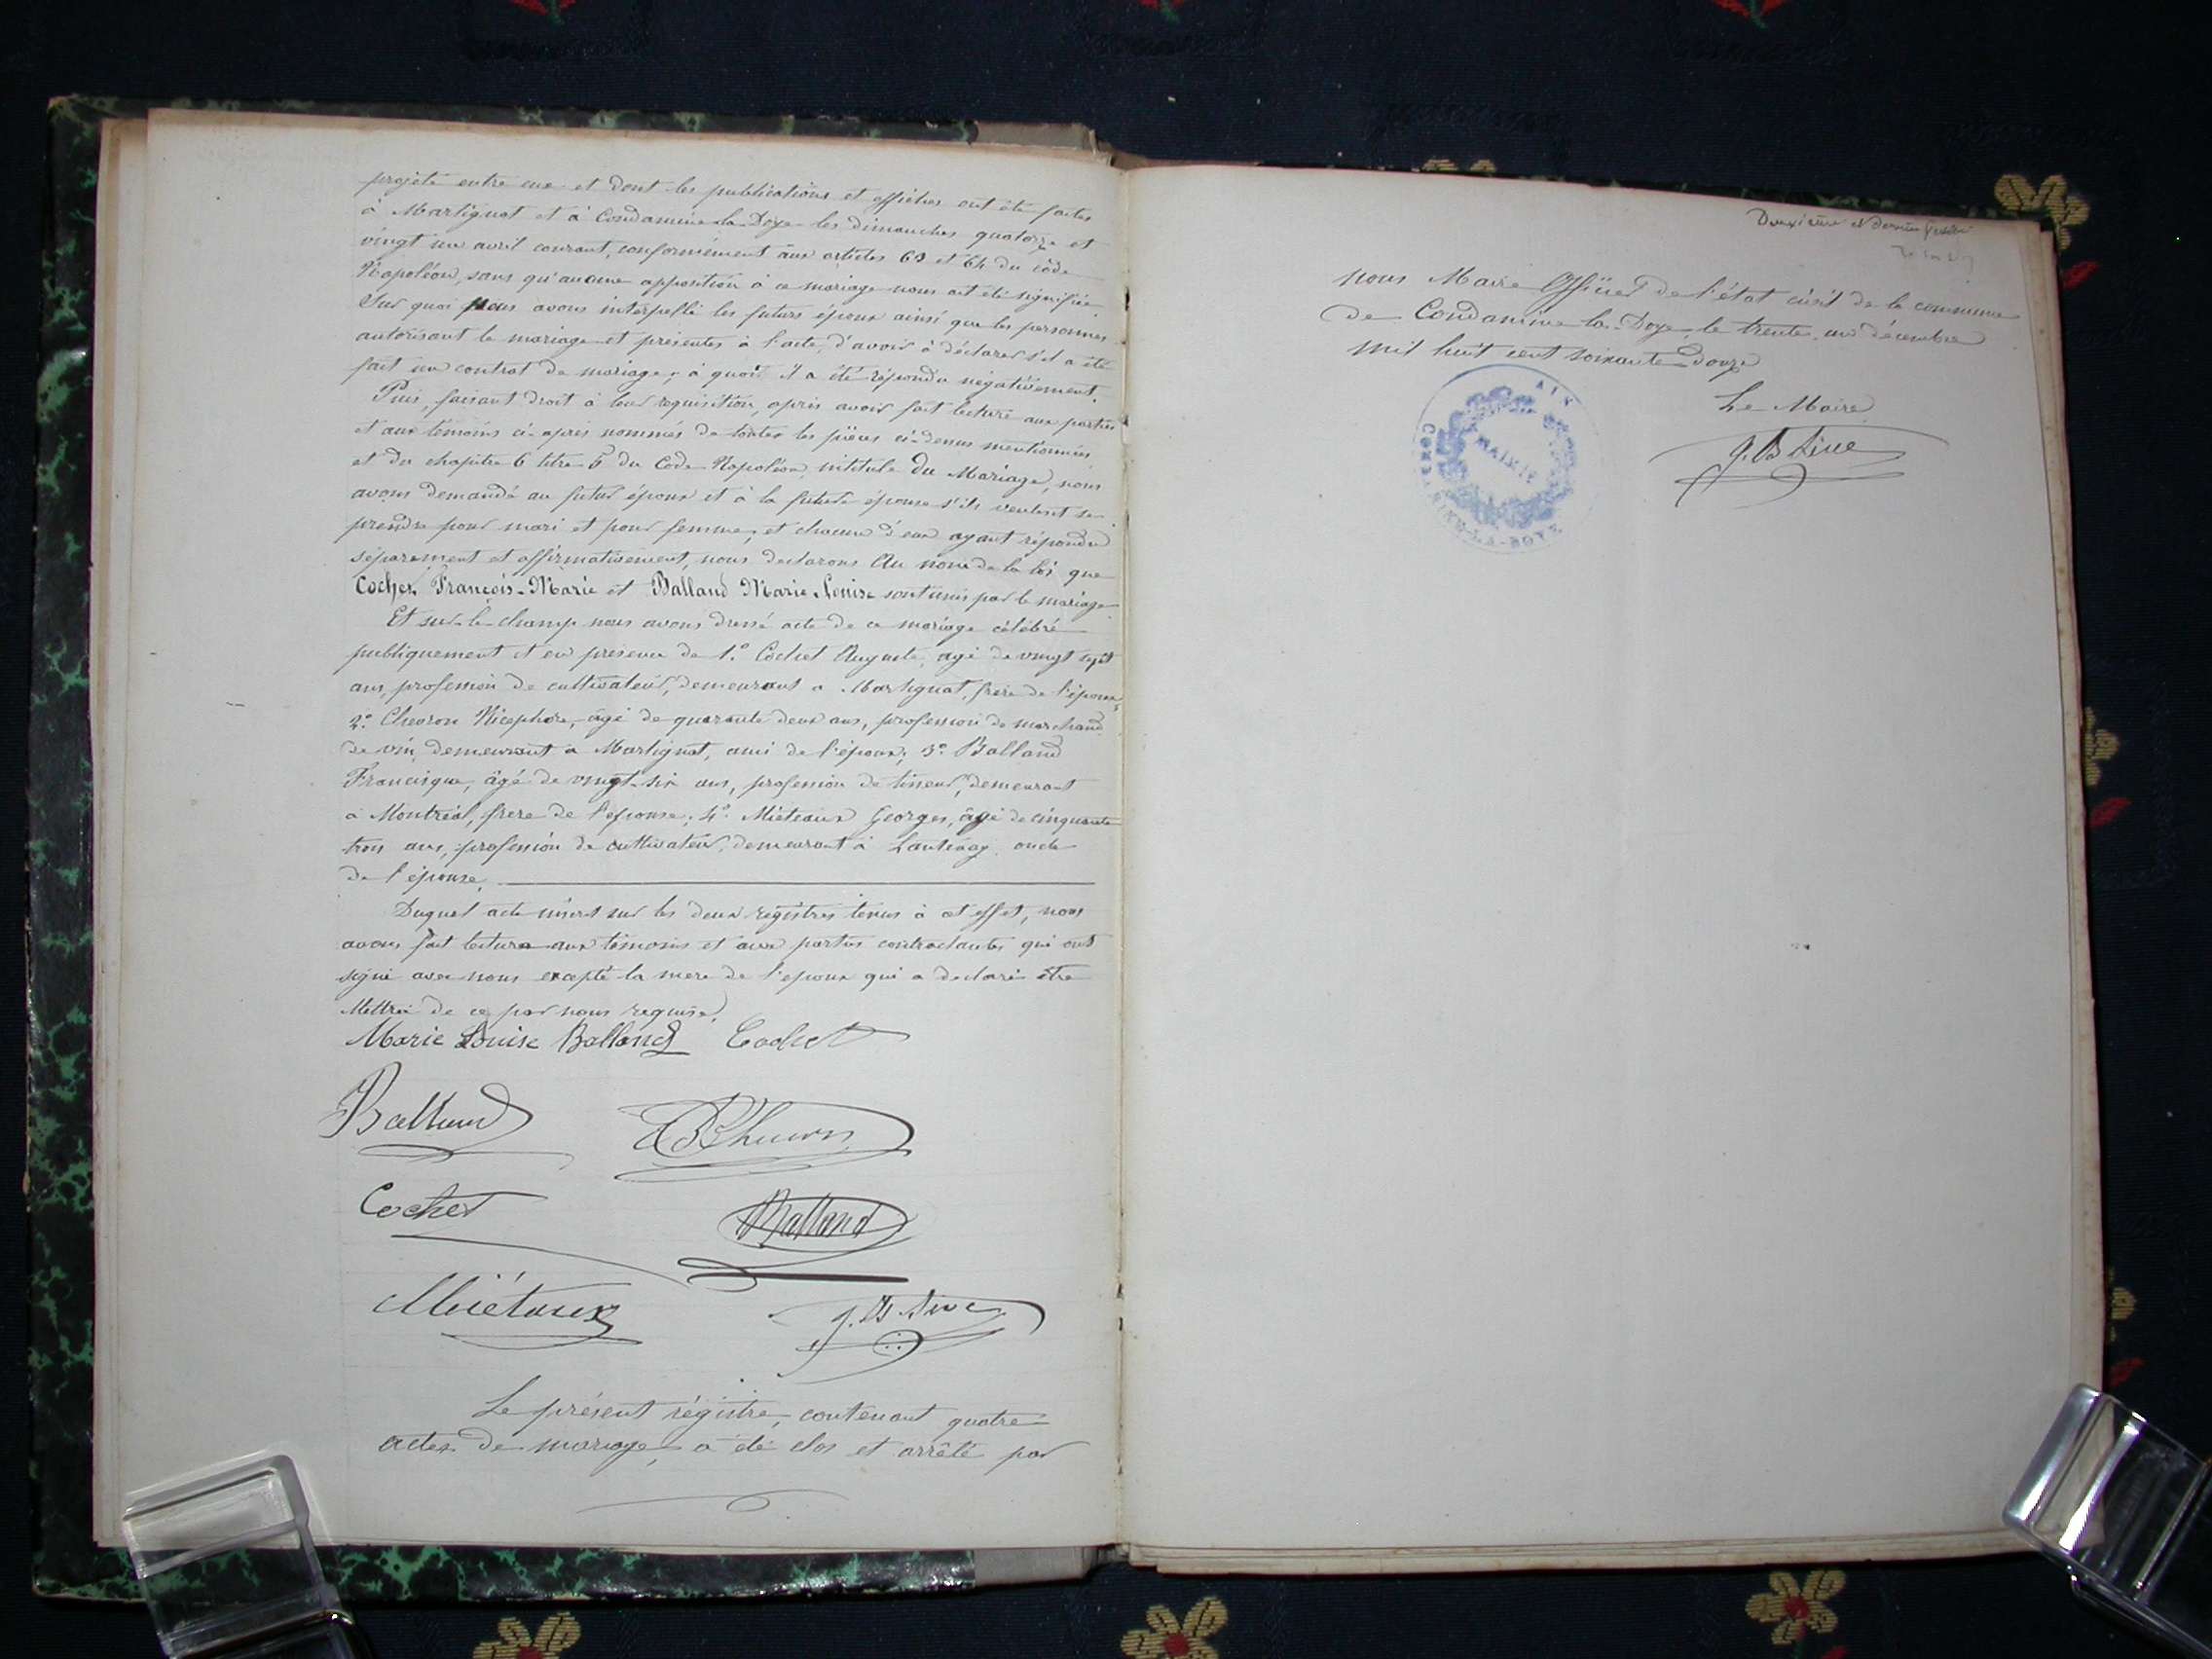 projeté entre eux et dont les publications et affiches ont été faites
à Martignat et à Condamine-la-Doye les dimanches quatorze et
vingt un avril courant, conformément aux articles 63 et 64 du code
Napoléon, sans qu'aucune opposition à ce mariage nous ait été signifiée.
Sur quoi nous avons interpellé les futurs époux ainsi que les personnes
autorisant le mariage et présentes à l'acte, d'avoir à déclarer s'il a été
fait un contrat de mariage; à quoi il a été répondu négativement.
Puis, faisant droit à leur requisition, après avoir fait lecture aux parties
et aux témoins ci-après nommés de toutes les pièces ci-dessus mentionnées
et du chapitre 6 titre 5 du Code Napoléon, intitulé Du Mariage, nous
avons demandé au futur époux et à la future épouse s'ils veulent se
prendre pour mari et pour femme, et chacun d'eux ayant répondu
séparement et affirmativement, nous declarons Au nom de la loi que
Cochet François-Marie et Balland Marie-Louise sont unis par le mariage
Et sur-le-champ nous avons dressé acte de ce mariage célébré
publiquement et en présence de 1.° Cochet Auguste, agé de vingt sept
ans, profession de cultivateur, demeurant à Martignat, frère de l'époux,
2.° Chevron Nicephore, âgé de quarante deux ans, profession de marchand
de vin, demeurant à Martignat, ami de l'époux; 3.° Balland
Francisque, âgé de vingt-six ans, profession de tisseur, demeurant
à Montréal, frere de l'epouse; 4.° Miétaux Georges, âgé de cinquante
trois ans, profession de cultivateur, demeurant à Lantenay, oncle
de l'épouse,
Duquel acte inscrit sur les deux registres tenus à cet effet, nous
avons fait lecture aux témoins et aux parties contractantes qui ont
signé avec nous excepté la mere de l'epoux qui a declaré être
illettrée de ce par nous requise.
Marie Louise Balland Cochet
Balland
Cochet Balland
Miétaux J. B. Sive
Le présent régistre, contenant quatre
actes de mariage, a été clos et arrêté par
Deuxième et dernier feuillet
nous Maire Officier de l'état civil de la commune
de Condamine-la-Doye, le trente-un décembre
mil huit cent soixante douze
Le Maire
J. B Sive
AIN
MAIRIE
CONDAMINE-LA-DOYE